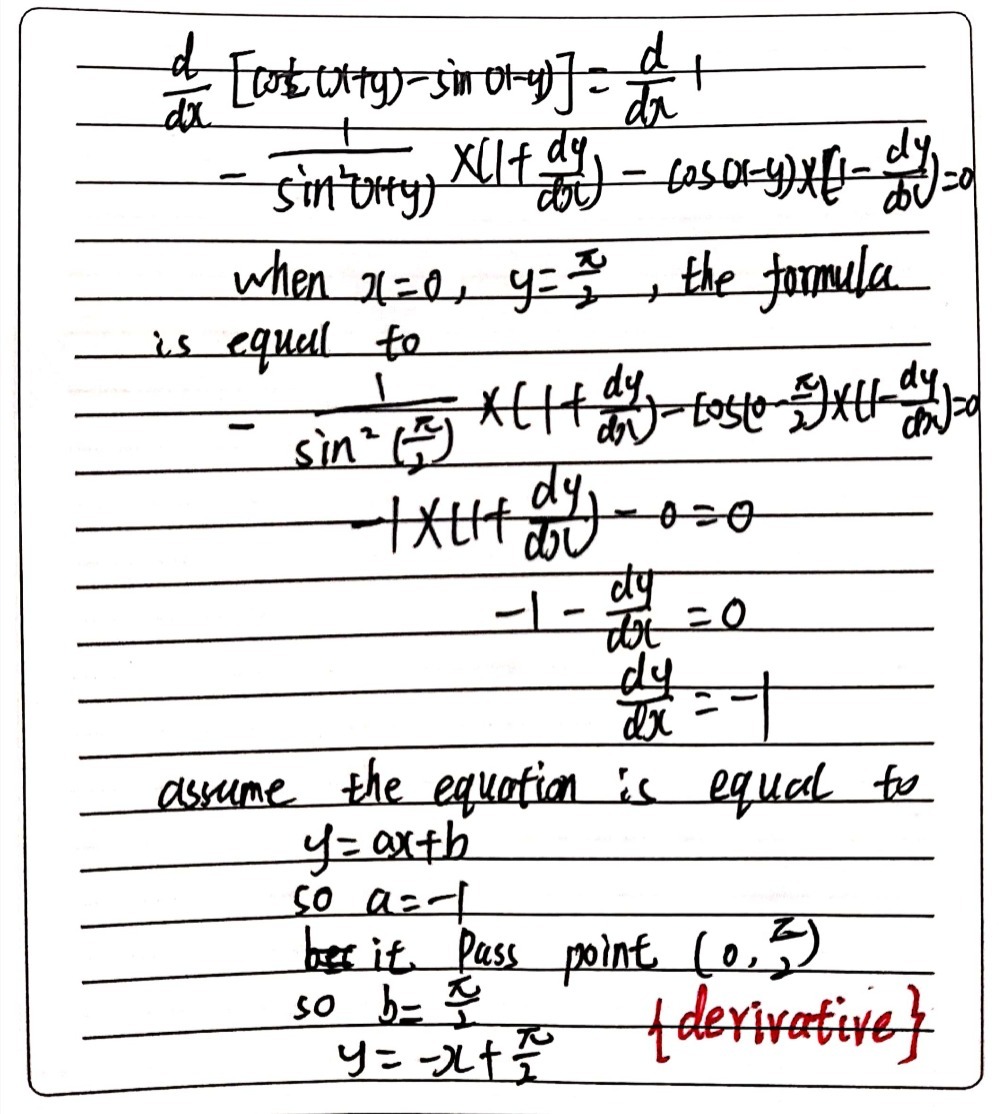 d/dx [cot (x+y) - sin (x-y)] = d/dx 1
- 1/sin²(x+y) × (1 + dy/dx) - cos(x-y) × (1 - dy/dx) = 0
when x=0, y=π/2, the formula
is equal to
- 1/sin²(π/2) × (1 + dy/dx) - cos(0-π/2) × (1 - dy/dx) = 0
-1 × (1 + dy/dx) - 0 = 0
-1 - dy/dx = 0
dy/dx = -1
assume the equation is equal to
y = ax+b
so a = -1
it Pass point (0, π/2)
so b = π/2
y = -x + π/2
{derivative}